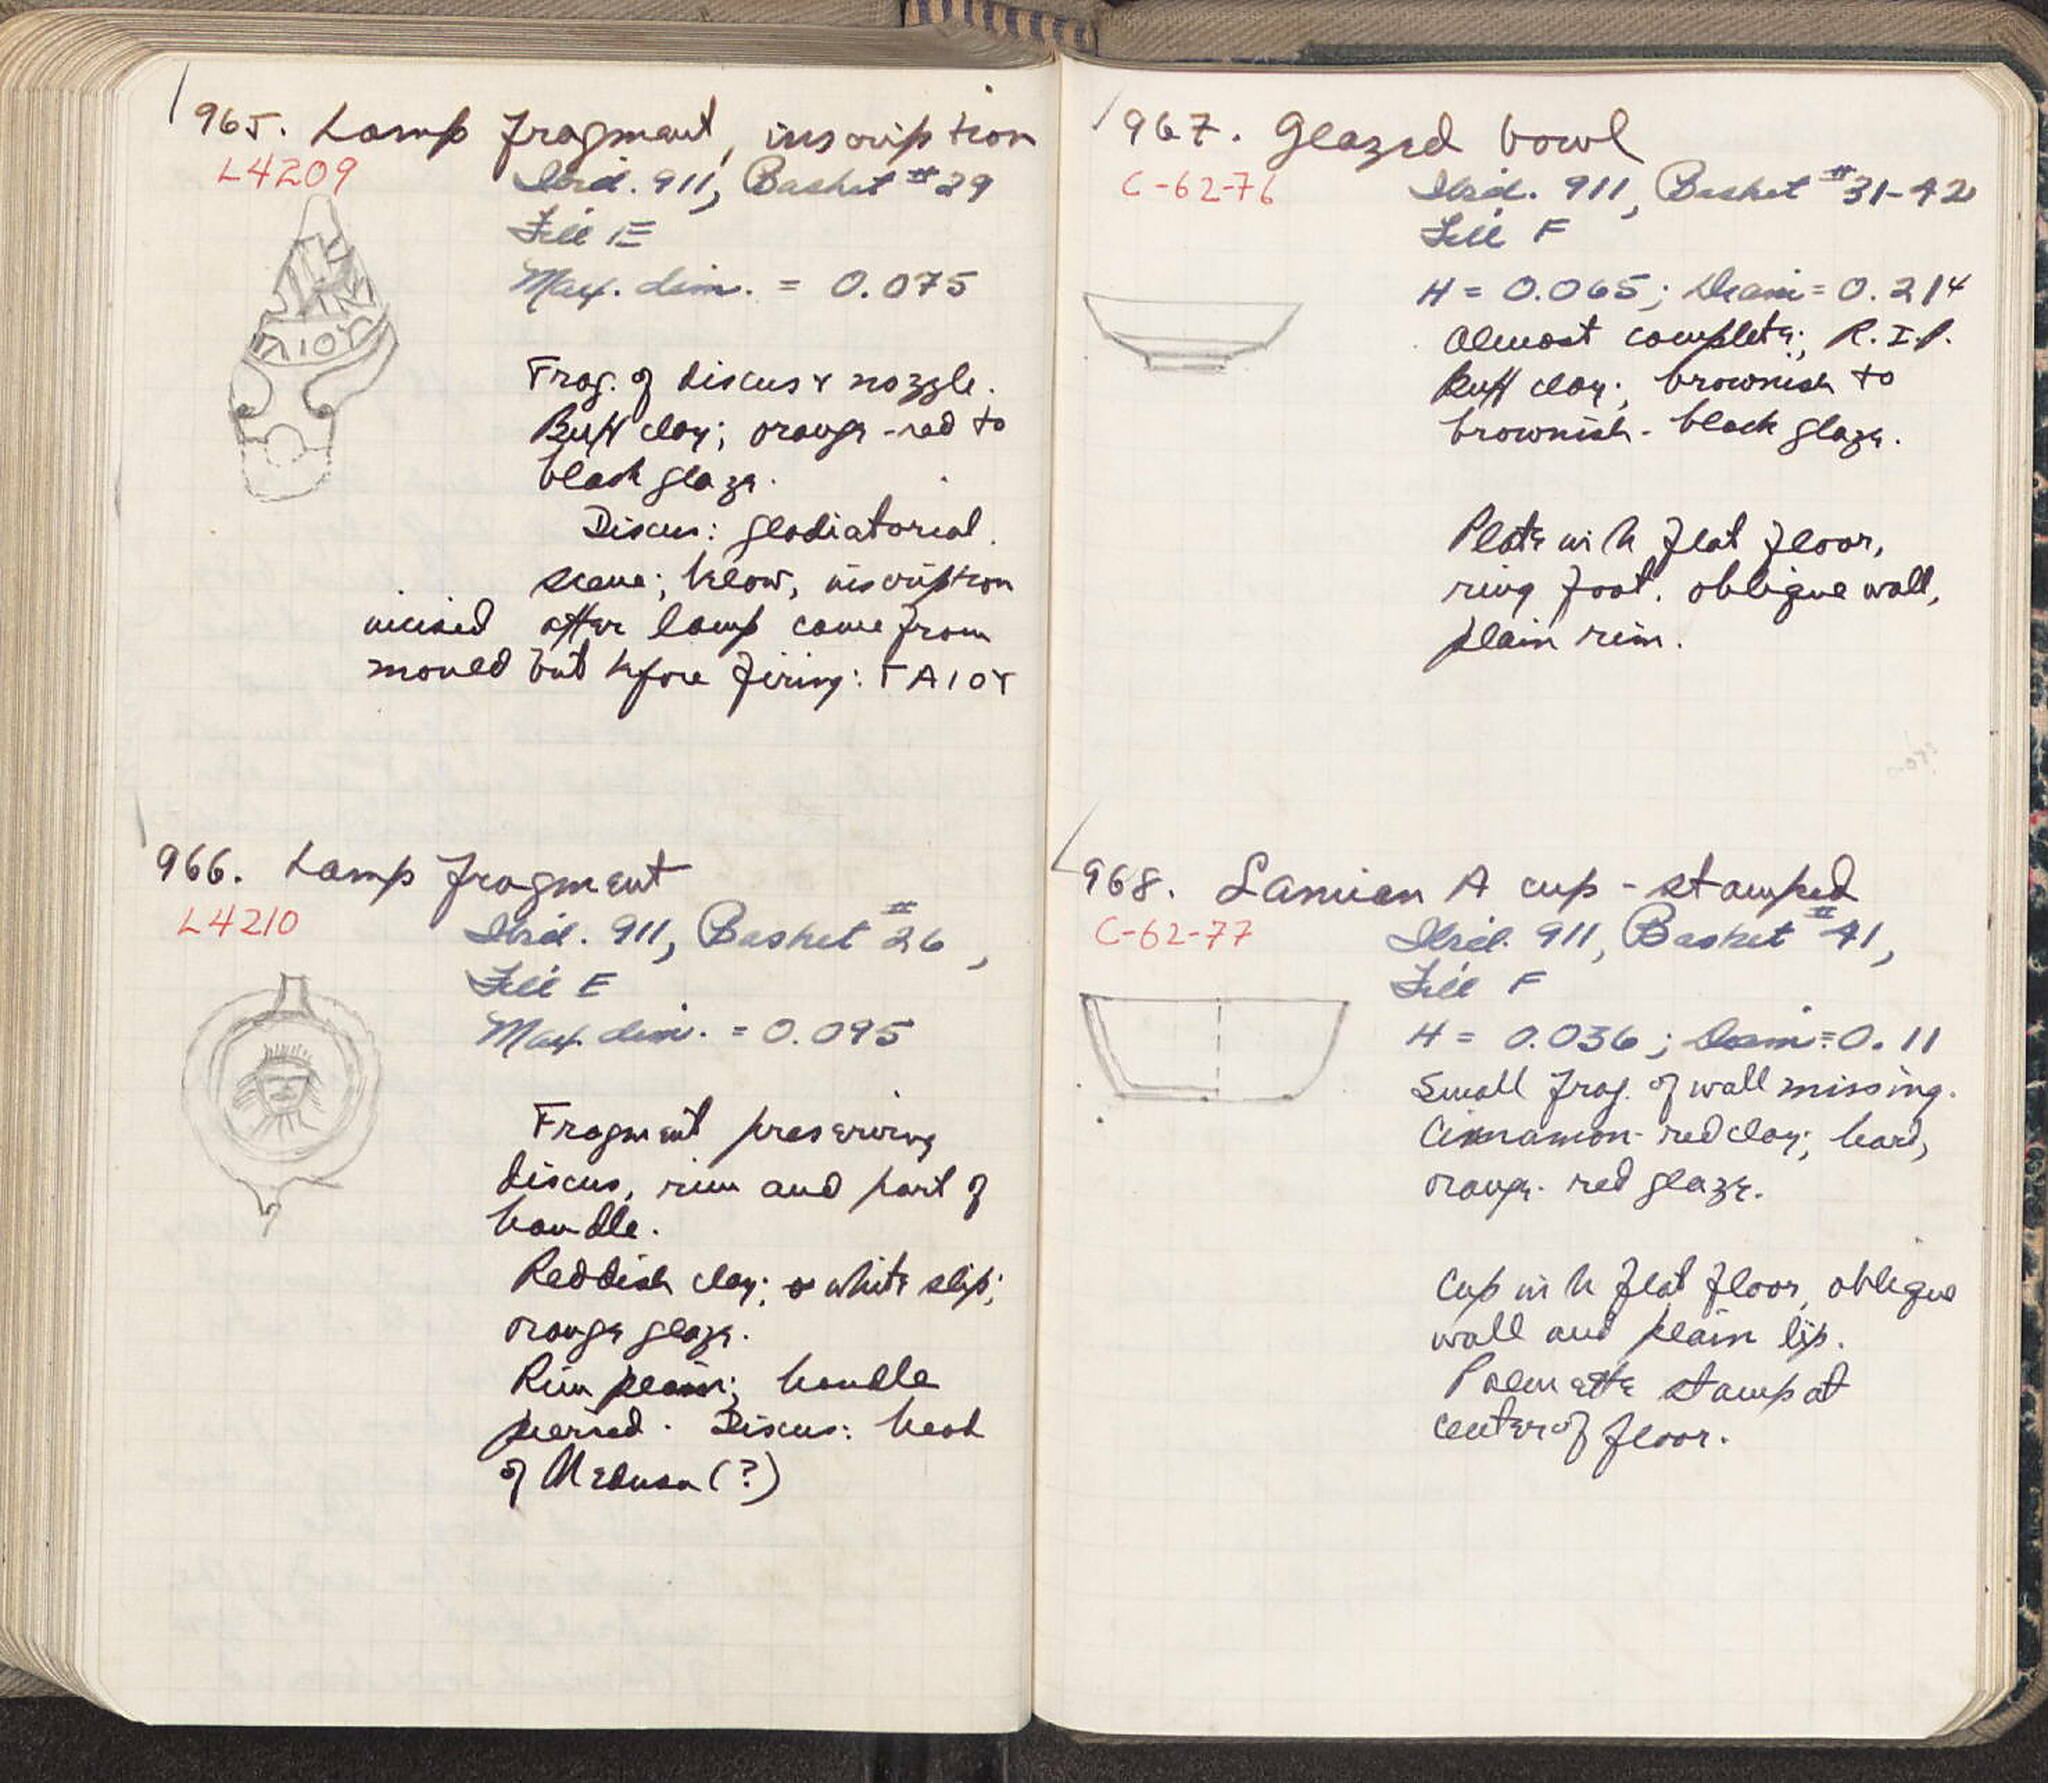 965. Lamp fragment, inscription
L4209
Ibid. 911, Basket #29
Fill E
Max. dim. = 0.075
ΓΑΙΟΥ
Frag. of discus & nozzle.
Buff clay; orange-red to
black glaze.
Discus: gladiatorial
scene; below, inscription
incised after lamp came from
mould but before firing: ΓΑΙΟΥ
966. Lamp fragment
L4210
Ibid. 911, Basket #26,
Fill E
Max. dim. = 0.095
Fragment preserving
discus, rim and part of
handle.
Reddish clay; white slip;
orange glaze.
Rim plain; handle
pierced. Discus: head
of Medusa (?)
967. Glazed bowl
C-62-76
Ibid. 911, Basket #31-42
Fill F
H = 0.065; Diam = 0.214
Almost complete; R.I.P.
Buff clay; brownish to
brownish-black glaze.
Plate with flat floor,
ring foot, oblique wall,
plain rim.
968. Samian A cup - stamped
C-62-77
Ibid. 911, Basket #41,
Fill F
H = 0.036; Diam = 0.11
Small frag. of wall missing.
Cinnamon-red clay; hard,
orange-red glaze.
Cup with flat floor, oblique
wall and plain lip.
Palmette stamp at
center of floor.